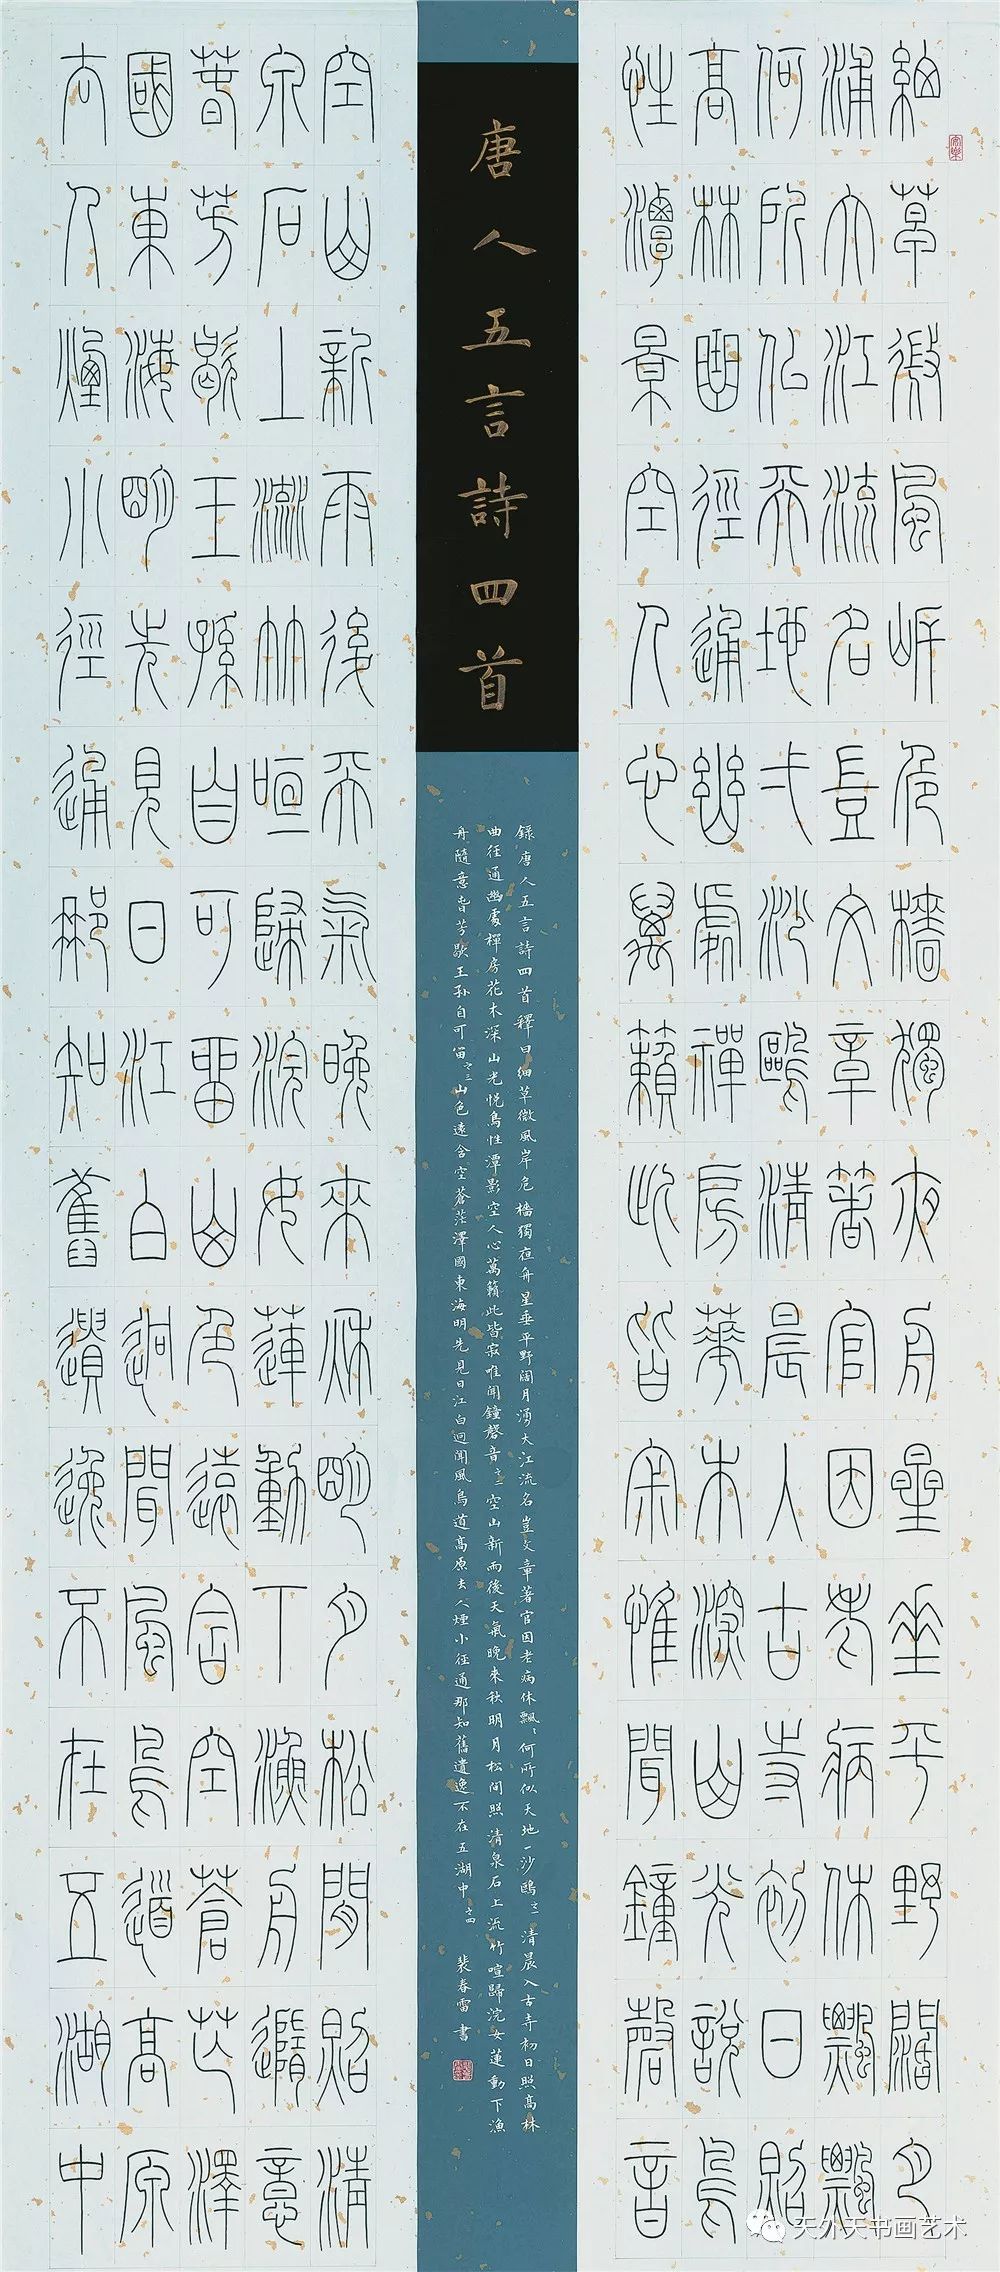 細草微風岸危檣獨夜舟星垂平野闊月
涌大江流名豈文章著官因老病休飄飄
何所似天地弌沙鷗清晨入古寺初日照
高林曲徑通幽處禪房華木深山光說鳥
性潭景空人心萬籟此皆寂惟聞鐘磬音
唐人五言詩四首
錄唐人五言詩四首釋曰細草微風岸危檣獨夜舟星垂平野闊月湧大江流名豈文章著官因老病休飄〻何所似天地一沙鷗之一清晨入古寺初日照高林
曲徑通幽處禪房花木深山光悅鳥性潭影空人心萬籟此皆寂唯聞鐘磬音之二空山新雨後天氣晚來秋明月松間照清泉石上流竹喧歸浣女蓮動下漁
舟隨意春芳歇王孫自可留之三山色遠含空蒼茫澤國東海明先見日江白迥聞風鳥道高原去人煙小徑通那知舊遺逸不在五湖中之四 裴春雷書
空山新雨後天氣晚來秋明月松間照清
泉石上流竹喧歸浣女蓮動下漁舟隨意
春芳歇王孫自可留山色遠含空蒼茫澤
國東海明先見日江白迥聞風鳥道高原
去人煙小徑通那知舊遺逸不在五湖中
天外天书画艺术